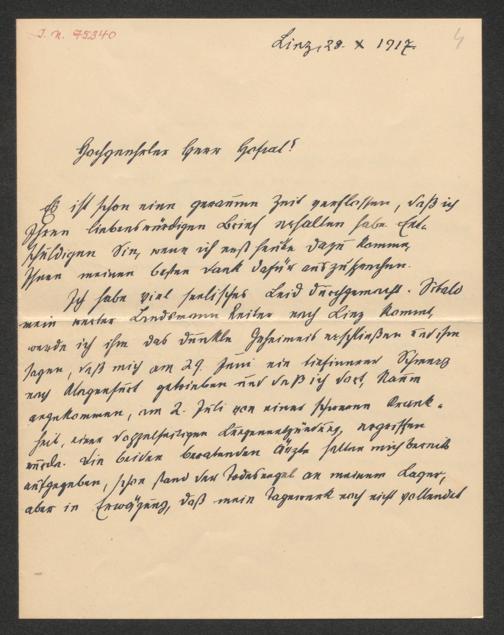 J. N. 79340
Linz, 28. X 1917.
4
Hochgeehrter Herr Hofrat!
Es ist schon eine geraume Zeit verflossen, daß ich
Ihren liebenswürdigen Brief erhalten habe. Ent-
schuldigen Sie, wenn ich erst heute dazu komme,
Ihnen meinen besten Dank dafür auszusprechen.
Ich habe viel seelisches Leid durchgemacht. Sobald
mein werter Landsmann Reiter nach Linz kommt,
werde ich ihm das dunkle Geheimnis erschließen und ihm
sagen, daß mich am 29. Juni ein tiefinnerer Schmerz
nach Klagenfurt getrieben und daß ich dort, kaum
angekommen, am 2. Juli von einer schweren Krank-
heit, einer doppelseitigen Lungenentzündung, ergriffen
wurde. Die beiden beratenden Ärzte hatten mich bereits
aufgegeben, schon stand der Todesengel an meinem Lager,
aber in Erwägung, daß mein Tagewerk noch nicht vollendet